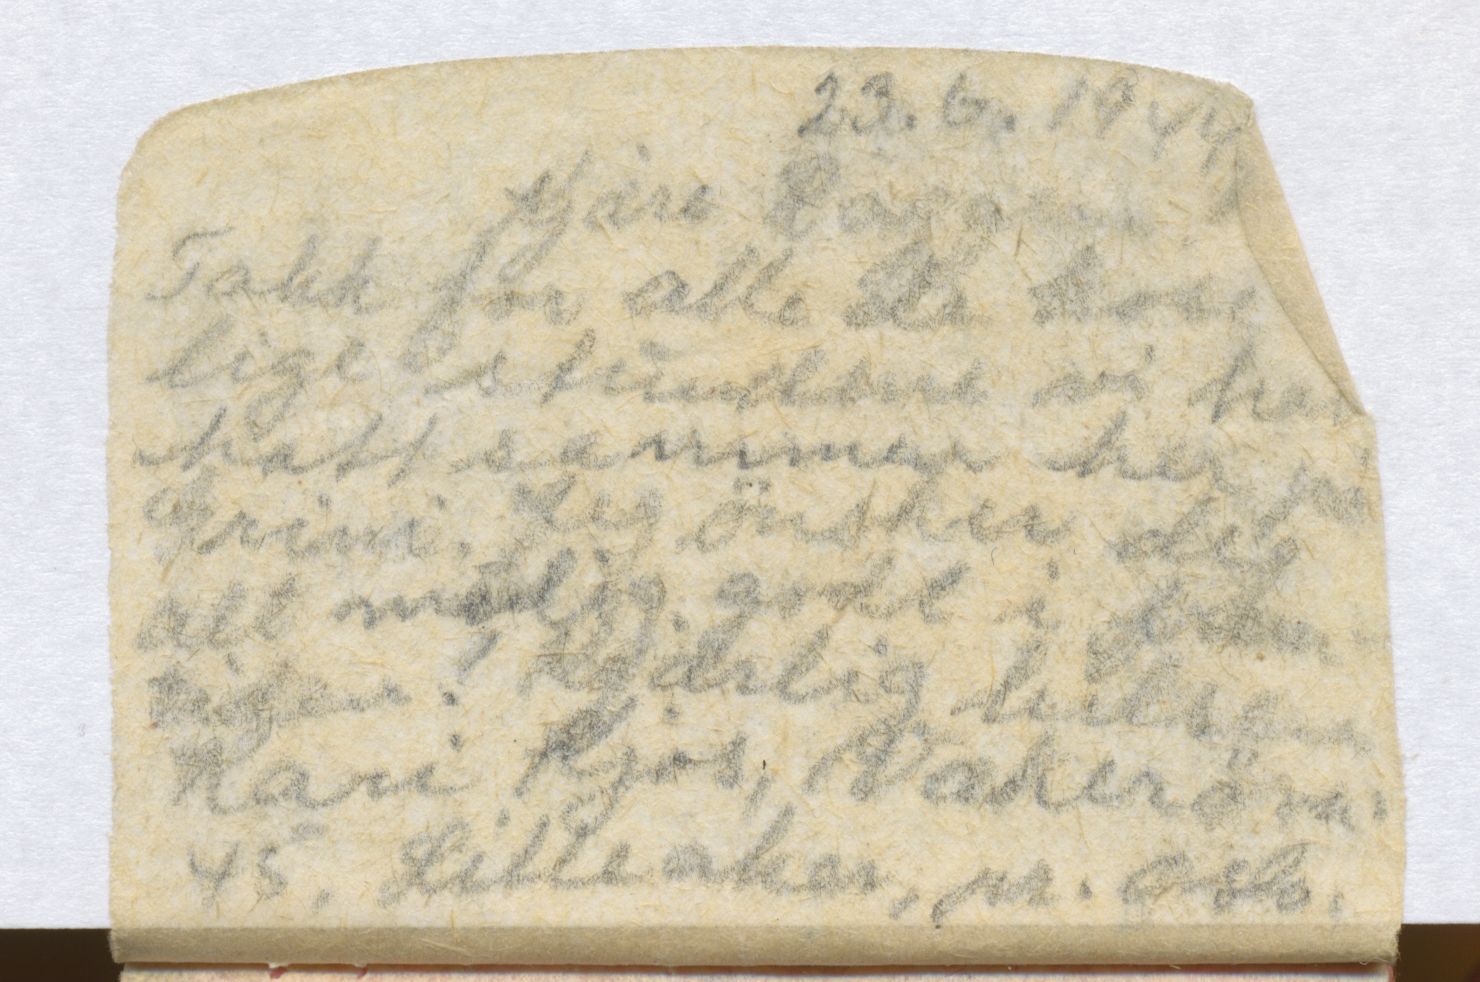 23. 6. 1944
Kjäre
Takk for alle de kose
lige stundene vi har
hatt sammen her på
Grini. Jeg önsker dig
alt mulig godt i frem
tiden! Hjertelig hilsen
Kari Kjos, Vækerövn.
45, Lilleaker, pr. Oslo.